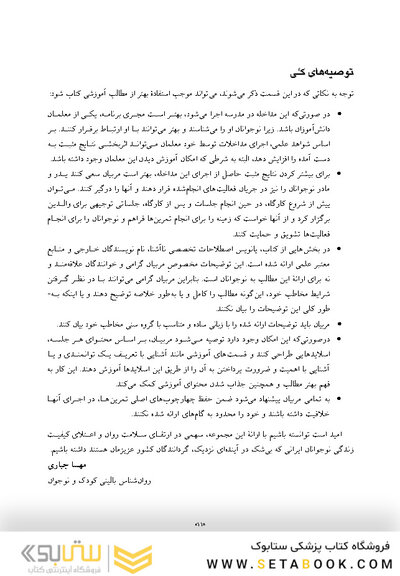 توصیه‌های کلی
توجه به نکاتی که در این قسمت ذکر می‌شوند، می‌تواند موجب استفادهٔ بهتر از مطالب آموزشی کتاب شود:
• در صورتی‌که این مداخله در مدرسه اجرا می‌شود، بهتر است مجری برنامه، یکی از معلمان
دانش‌آموزان باشد. زیرا نوجوانان او را می‌شناسند و بهتر می‌توانند با او ارتباط برقرار کنند. بر
اساس شواهد علمی، اجرای مداخلات توسط خود معلمان می‌تواند اثربخشی نتایج مثبت به
دست آمده را افزایش دهد، البته به شرطی که امکان آموزش دیدن این معلمان وجود داشته باشد.
• برای بیشتر کردن نتایج مثبت حاصل از اجرای این مداخله، بهتر است مربیان سعی کنند پدر و
مادر نوجوانان را نیز در جریان فعالیت‌های انجام‌شده قرار دهند و آنها را درگیر کنند. می‌توان
پیش از شروع کارگاه، در حین انجام جلسات و پس از کارگاه، جلساتی توجیهی برای والدین
برگزار کرد و از آنها خواست که زمینه را برای انجام تمرین‌ها فراهم و نوجوانان را برای انجام
فعالیت‌ها تشویق و حمایت کنند.
• در بخش‌هایی از کتاب، پانویس اصطلاحات تخصصی ناآشنا، نام نویسندگان خارجی و منابع
معتبر علمی ارائه شده است. این توضیحات مخصوص مربیان گرامی و خوانندگان علاقه‌مند و
نه برای ارائهٔ این مطالب به نوجوانان است. بنابراین مربیان گرامی می‌توانند با در نظر گرفتن
شرایط مخاطب خود، این‌گونه مطالب را کامل و یا به‌طور خلاصه توضیح دهند و یا اینکه به-
طور کلی این توضیحات را بیان نکنند.
• مربیان باید توضیحات ارائه شده را با زبانی ساده و متناسب با گروه سنی مخاطب خود بیان کنند.
• درصورتی‌که این امکان وجود دارد توصیه می‌شود مربیان، بر اساس محتوای هر جلسه،
اسلایدهایی طراحی کنند و قسمت‌های آموزشی مانند آشنایی با تعریف یک توانمندی و یا
آشنایی با اهمیت و ضرورت پرداختن به آن را از طریق این اسلایدها آموزش دهند. این کار به
فهم بهتر مطالب و همچنین جذاب شدن محتوای آموزشی کمک می‌کند.
• به تمامی مربیان پیشنهاد می‌شود ضمن حفظ چهارچوب‌های اصلی تمرین‌ها، در اجرای آنها
خلاقیت داشته باشند و خود را محدود به گام‌های ارائه شده نکنند.
امید است توانسته باشیم با ارائهٔ این مجموعه، سهمی در ارتقای سلامت روان و اعتلای کیفیت
زندگی نوجوانان ایرانی که بی‌شک در آینده‌ای نزدیک، گردانندگان کشور عزیزمان هستند داشته باشیم.
مهسا جباری
روان‌شناس بالینی کودک و نوجوان
فروشگاه کتاب پزشکی ستابوک
www.SETABOOK.com
ستابوک
فروشگاه اینترنتی کتاب